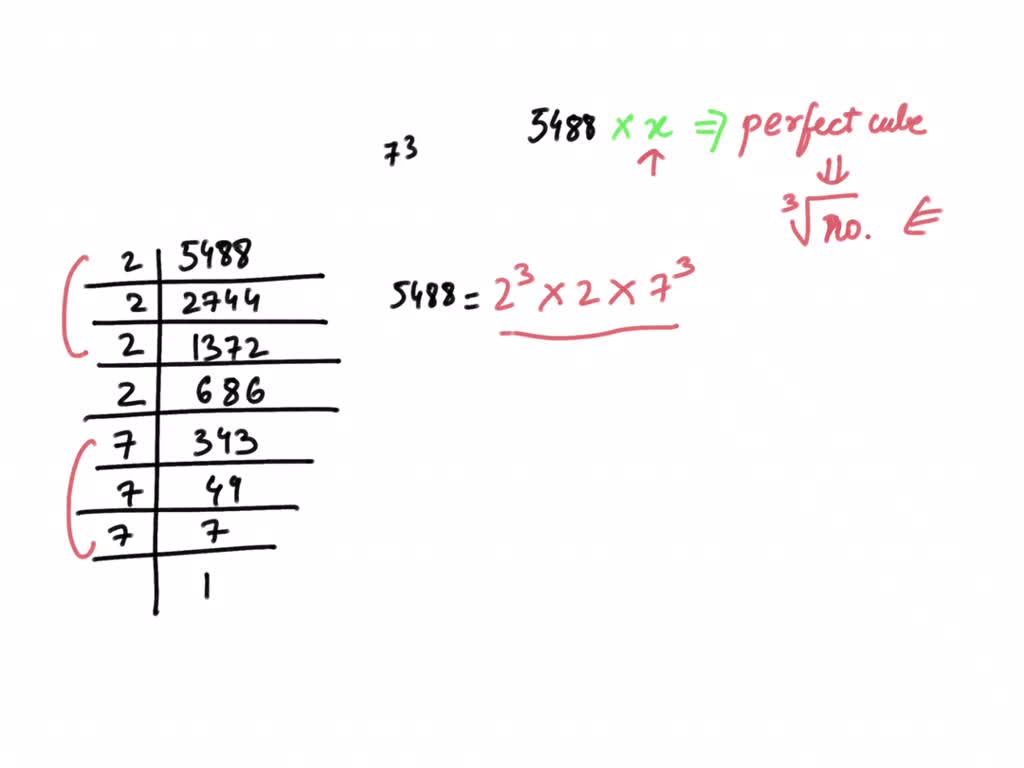 5488 × x ⇒ perfect cube
7³
↑ ⇓
∛no. ∈
2 | 5488
2 | 2744
2 | 1372
2 | 686
7 | 343
7 | 49
7 | 7
1
5488 = 2³ × 2 × 7³